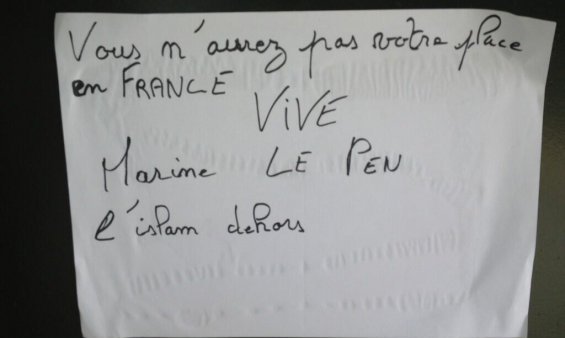 Vous n'aurez pas votre place
en FRANCE
VIVE
Marine LE PEN
l'islam dehors